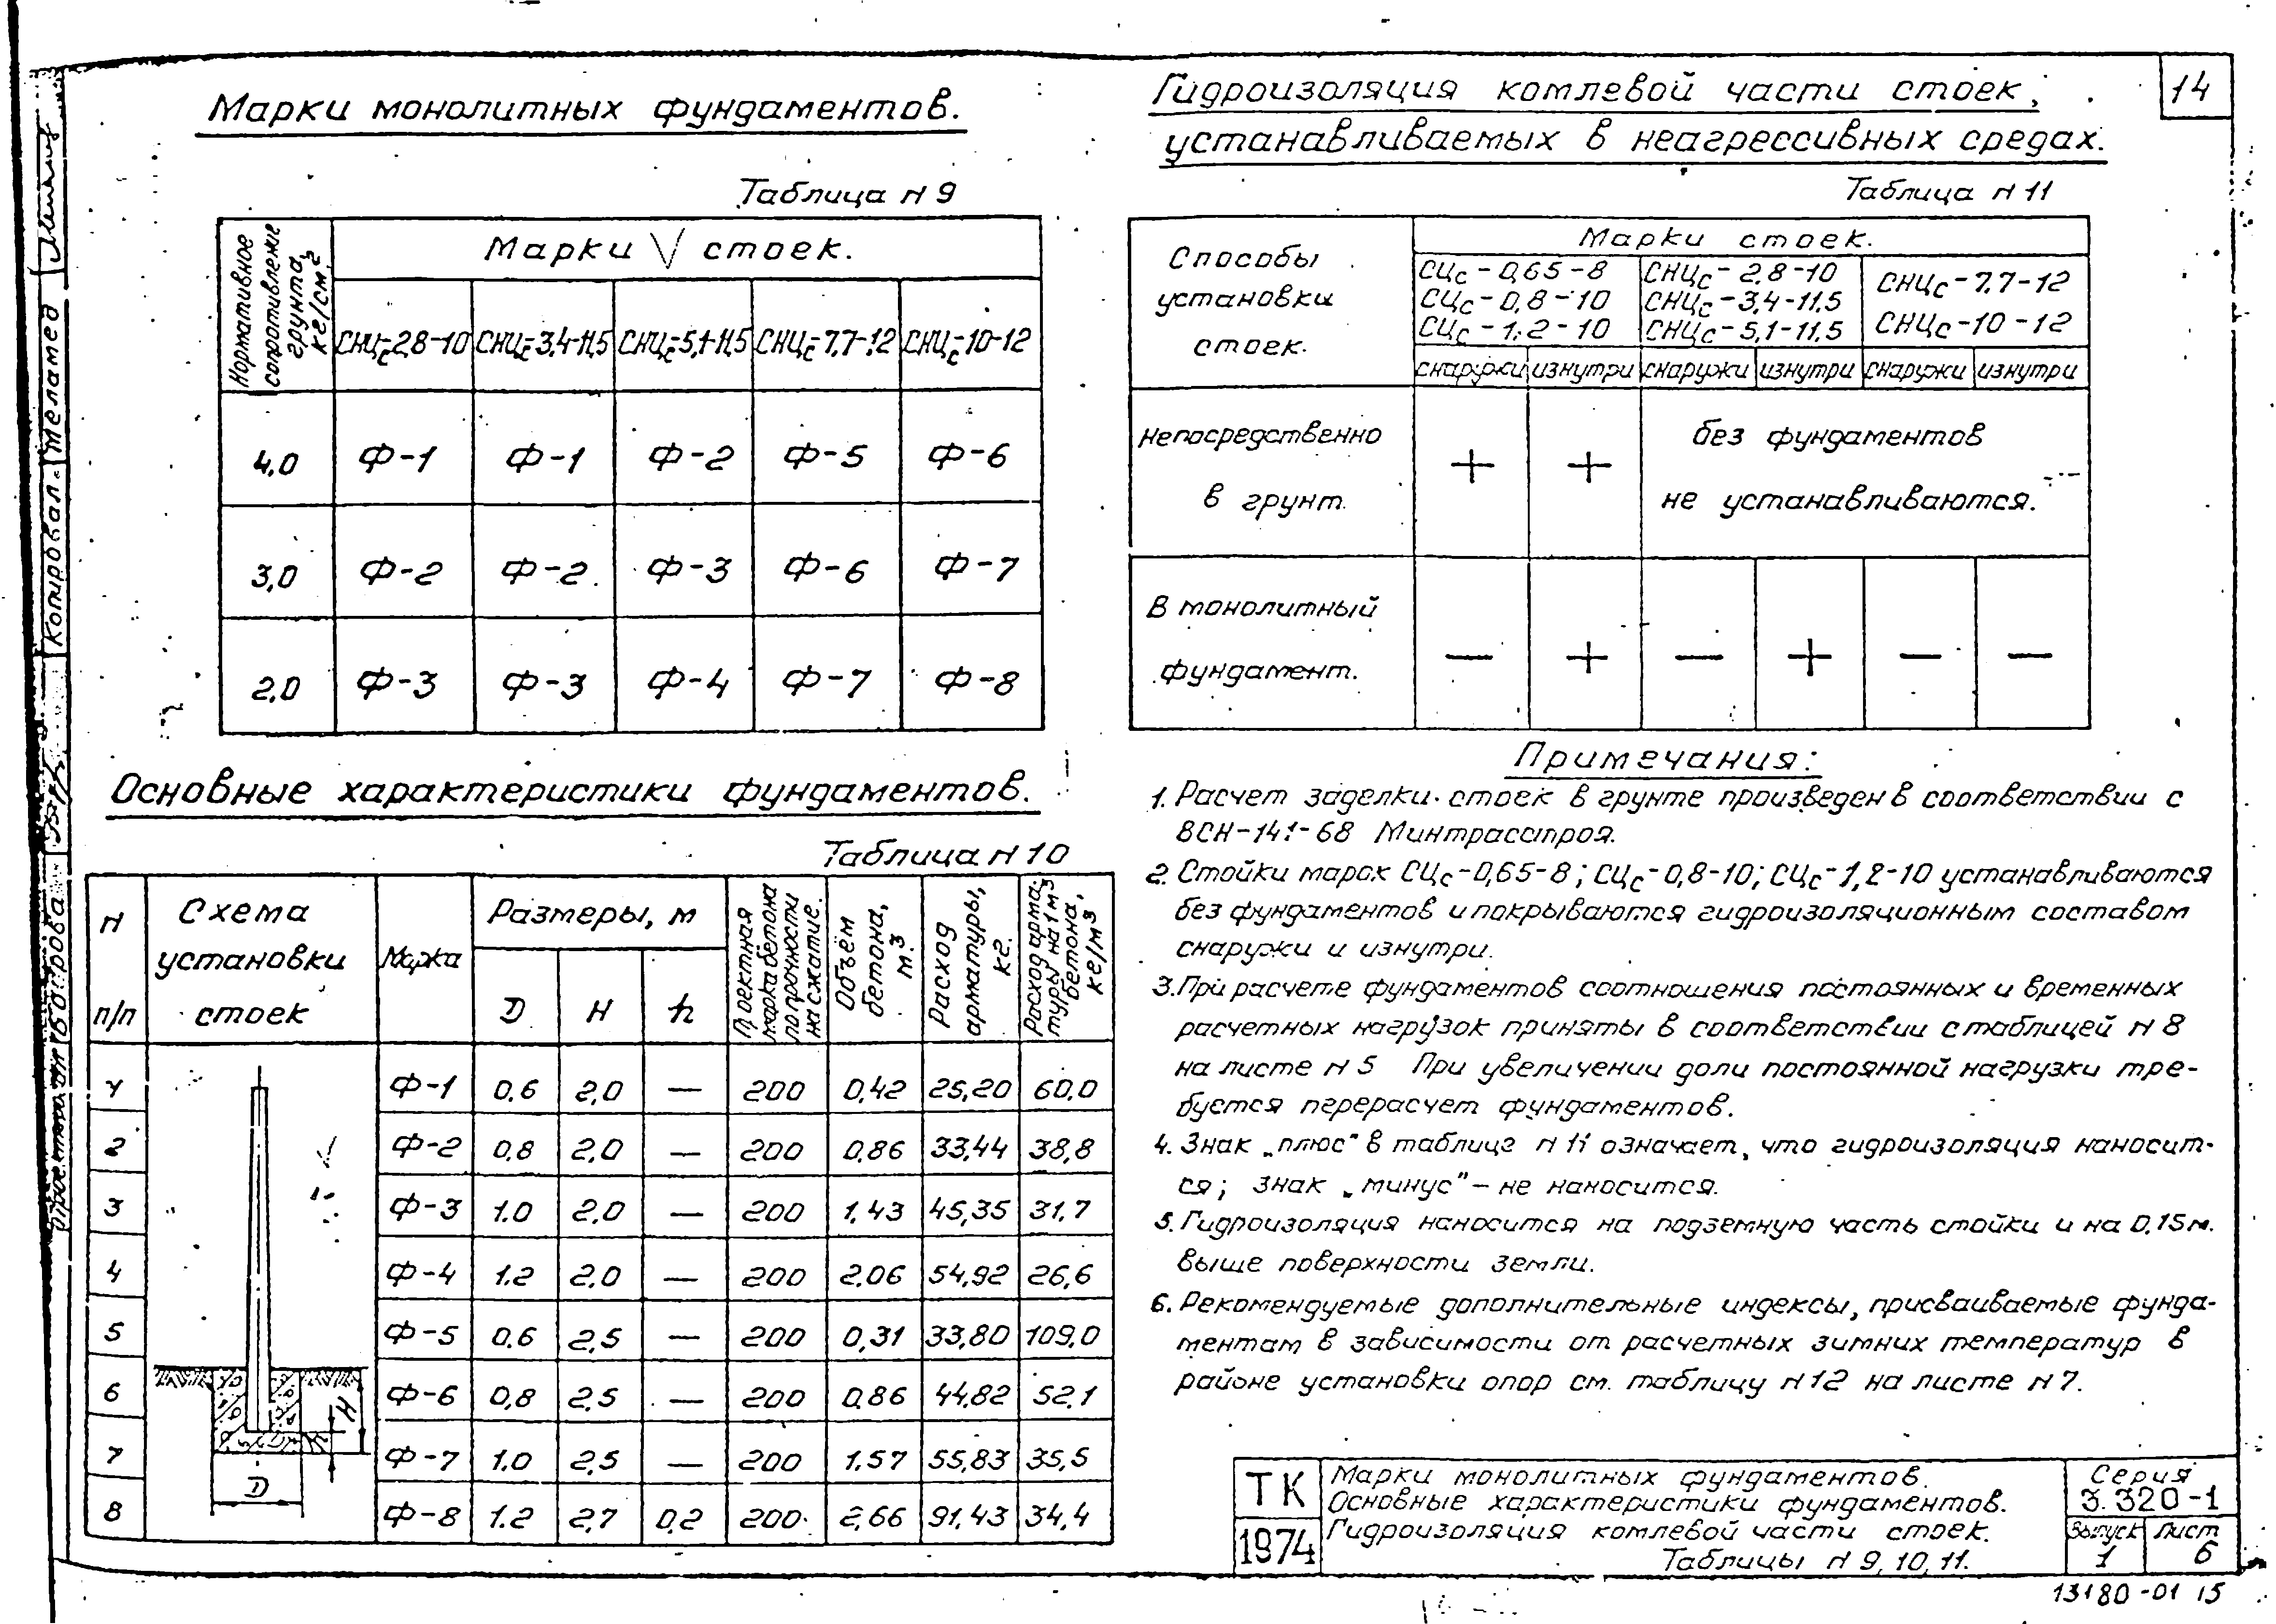 14
Марки монолитных фундаментов.
Таблица N 9
Нормативное сопротивление грунта, кг/см²
Марки стоек.
СНЦс-2,8-10 СНЦс-3,4-11,5 СНЦс-5,1-11,5 СНЦс-7,7-12 СНЦс-10-12
4,0 Ф-1 Ф-1 Ф-2 Ф-5 Ф-6
3,0 Ф-2 Ф-2 Ф-3 Ф-6 Ф-7
2,0 Ф-3 Ф-3 Ф-4 Ф-7 Ф-8
Основные характеристики фундаментов.
Таблица N 10
N п/п
Схема установки стоек
Марка
Размеры, м
D H h
Проектная марка бетона по прочности на сжатие.
Объём бетона, м.³
Расход арматуры, кг.
Расход арматуры на 1 м³ бетона, кг/м³
1 Ф-1 0.6 2,0 — 200 0,42 25,20 60,0
2 Ф-2 0,8 2,0 — 200 0,86 33,44 38,8
3 Ф-3 1.0 2,0 — 200 1,43 45,35 31,7
4 Ф-4 1.2 2,0 — 200 2.06 54,92 26,6
5 Ф-5 0.6 2,5 — 200 0,31 33,80 109,0
6 Ф-6 0,8 2,5 — 200 0.86 44,82 52,1
7 Ф-7 1.0 2,5 — 200 1.57 55,83 35,5
8 Ф-8 1.2 2,7 0,2 200 2,66 91,43 34,4
H
D
Гидроизоляция комлевой части стоек,
устанавливаемых в неагрессивных средах.
Таблица N 11
Способы установки стоек.
Марки стоек.
СЦс-0,65-8 СНЦс-2,8-10 СНЦс-7,7-12
СЦс-0,8-10 СНЦс-3,4-11,5 СНЦс-10-12
СЦс-1,2-10 СНЦс-5,1-11,5
снаружи изнутри снаружи изнутри снаружи изнутри
Непосредственно в грунт. + + без фундаментов не устанавливаются.
В монолитный фундамент. — + — + — —
Примечания:
1. Расчет заделки стоек в грунте произведен в соответствии с
ВСН-141-68 Минтрасстроя.
2. Стойки марок СЦс-0,65-8; СЦс-0,8-10; СЦс-1,2-10 устанавливаются
без фундаментов и покрываются гидроизоляционным составом
снаружи и изнутри.
3. При расчете фундаментов соотношения постоянных и временных
расчетных нагрузок приняты в соответствии с таблицей N 8
на листе N 5 При увеличении доли постоянной нагрузки тре-
буется перерасчет фундаментов.
4. Знак „плюс" в таблице N 11 означает, что гидроизоляция наносит-
ся; знак „минус" — не наносится.
5. Гидроизоляция наносится на подземную часть стойки и на 0,15м.
выше поверхности земли.
6. Рекомендуемые дополнительные индексы, присваиваемые фунда-
ментам в зависимости от расчетных зимних температур в
районе установки опор см. таблицу N 12 на листе N 7.
ТК
1974
Марки монолитных фундаментов.
Основные характеристики фундаментов.
Гидроизоляция комлевой части стоек.
Таблицы N 9, 10, 11.
Серия
3.320-1
Выпуск 1
Лист 6
13180-01 15
Копировал